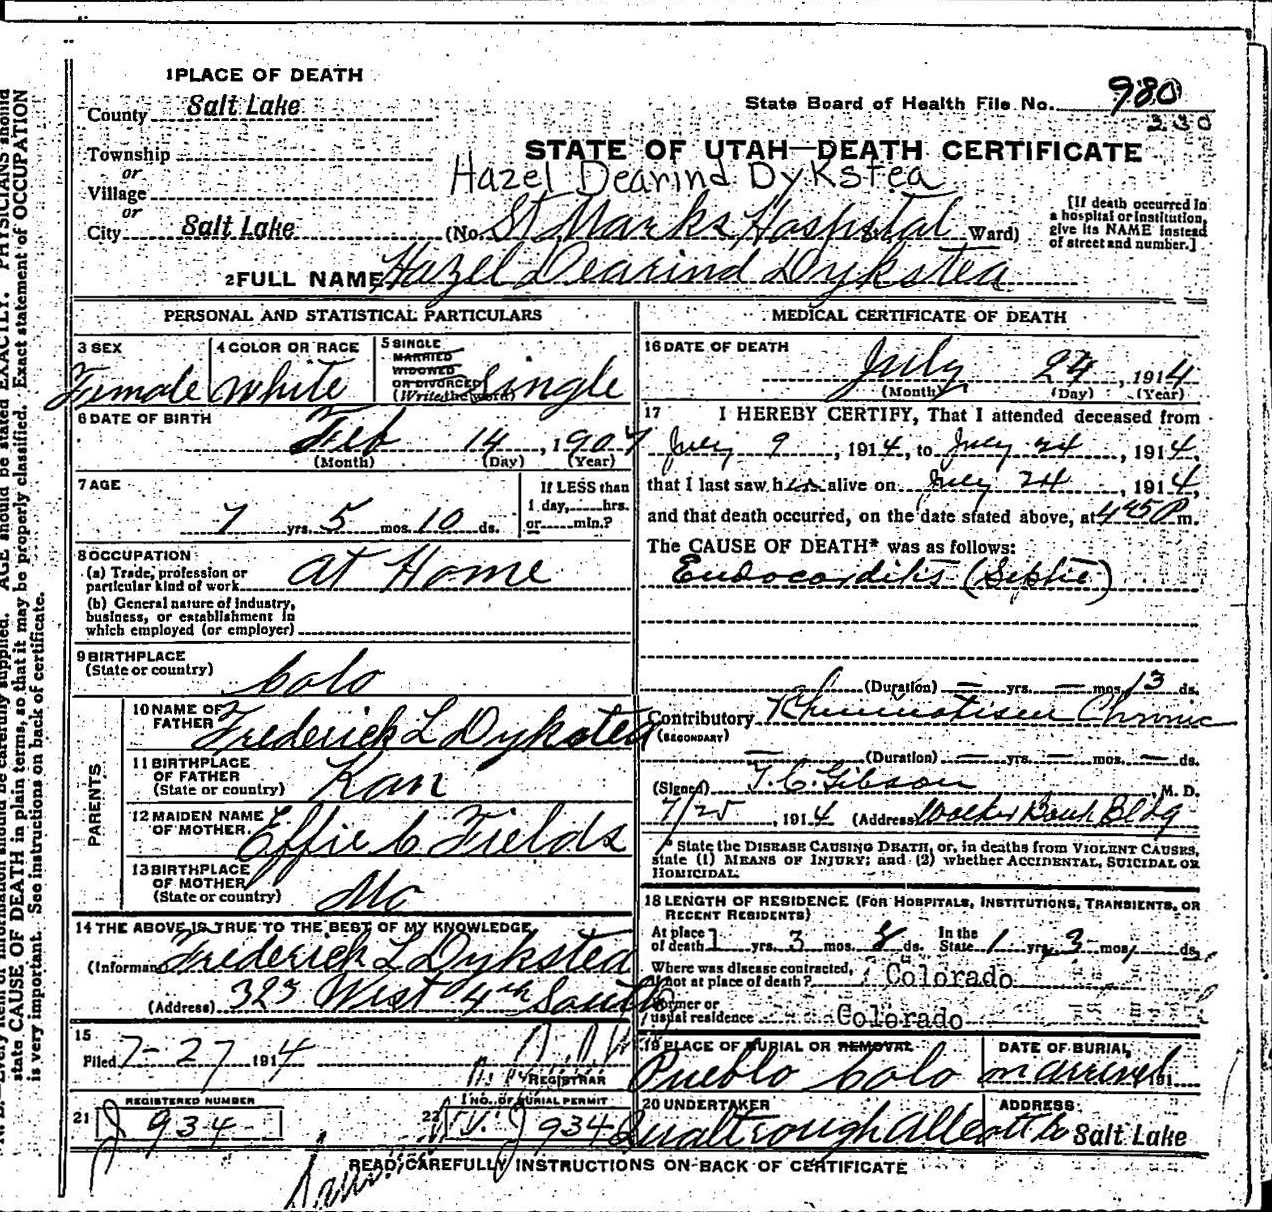 1 PLACE OF DEATH
County Salt Lake
State Board of Health File No. 980
230
Township
or
Village
or
City Salt Lake
STATE OF UTAH—DEATH CERTIFICATE
Hazel Dearind Dykstea
(No. St Marks Hospital Ward)
[If death occurred in
a hospital or institution,
give its NAME instead
of street and number.]
2 FULL NAME Hazel Dearind Dykstea
PERSONAL AND STATISTICAL PARTICULARS
3 SEX
Female
4 COLOR OR RACE
White
5 SINGLE
MARRIED
WIDOWED
OR DIVORCED
(Write the word)
Single
6 DATE OF BIRTH
Feb 14, 1907
(Month) (Day) (Year)
7 AGE
7 yrs. 5 mos. 10 ds.
If LESS than
1 day, hrs.
or min.?
8 OCCUPATION
(a) Trade, profession or
particular kind of work
At Home
(b) General nature of industry,
business, or establishment in
which employed (or employer)
9 BIRTHPLACE
(State or country)
Colo
PARENTS
10 NAME OF
FATHER
Frederick L Dykstea
11 BIRTHPLACE
OF FATHER
(State or country)
Kan
12 MAIDEN NAME
OF MOTHER
Effie C Fields
13 BIRTHPLACE
OF MOTHER
(State or country)
Mo
14 THE ABOVE IS TRUE TO THE BEST OF MY KNOWLEDGE
(Informant) Frederick L Dykstea
(Address) 323 West 4th South
15
Filed 7-27 1914
REGISTRAR
21 REGISTERED NUMBER
J 934
22 NO. OF BURIAL PERMIT
J 934
MEDICAL CERTIFICATE OF DEATH
16 DATE OF DEATH
July 24, 1914
(Month) (Day) (Year)
17 I HEREBY CERTIFY, That I attended deceased from
July 9, 1914, to July 24, 1914,
that I last saw her alive on July 24, 1914,
and that death occurred, on the date stated above, at 445 P m.
The CAUSE OF DEATH* was as follows:
Endocarditis (Septic)
(Duration) — yrs. — mos. 13 ds.
Contributory Rheumatism Chronic
(SECONDARY)
(Duration) — yrs. — mos. — ds.
(Signed) T. C. Gibson, M. D.
7/25, 1914 (Address) Walker Bank Bldg
* State the DISEASE CAUSING DEATH, or, in deaths from VIOLENT CAUSES,
state (1) MEANS OF INJURY; and (2) whether ACCIDENTAL, SUICIDAL OR
HOMICIDAL.
18 LENGTH OF RESIDENCE (FOR HOSPITALS, INSTITUTIONS, TRANSIENTS, OR
RECENT RESIDENTS)
At place
of death 1 yrs. 3 mos. ds. In the
State 1 yrs. 3 mos. ds.
Where was disease contracted,
if not at place of death? Colorado
Former or
usual residence Colorado
19 PLACE OF BURIAL OR REMOVAL
Pueblo Colo
DATE OF BURIAL
on arrival 191
20 UNDERTAKER
Qualtrough Allcott Co
ADDRESS
Salt Lake
READ CAREFULLY INSTRUCTIONS ON BACK OF CERTIFICATE
AGE should be stated EXACTLY. PHYSICIANS should
state CAUSE OF DEATH in plain terms, so that it may be properly classified. Exact statement of OCCUPATION
is very important. See instructions on back of certificate.